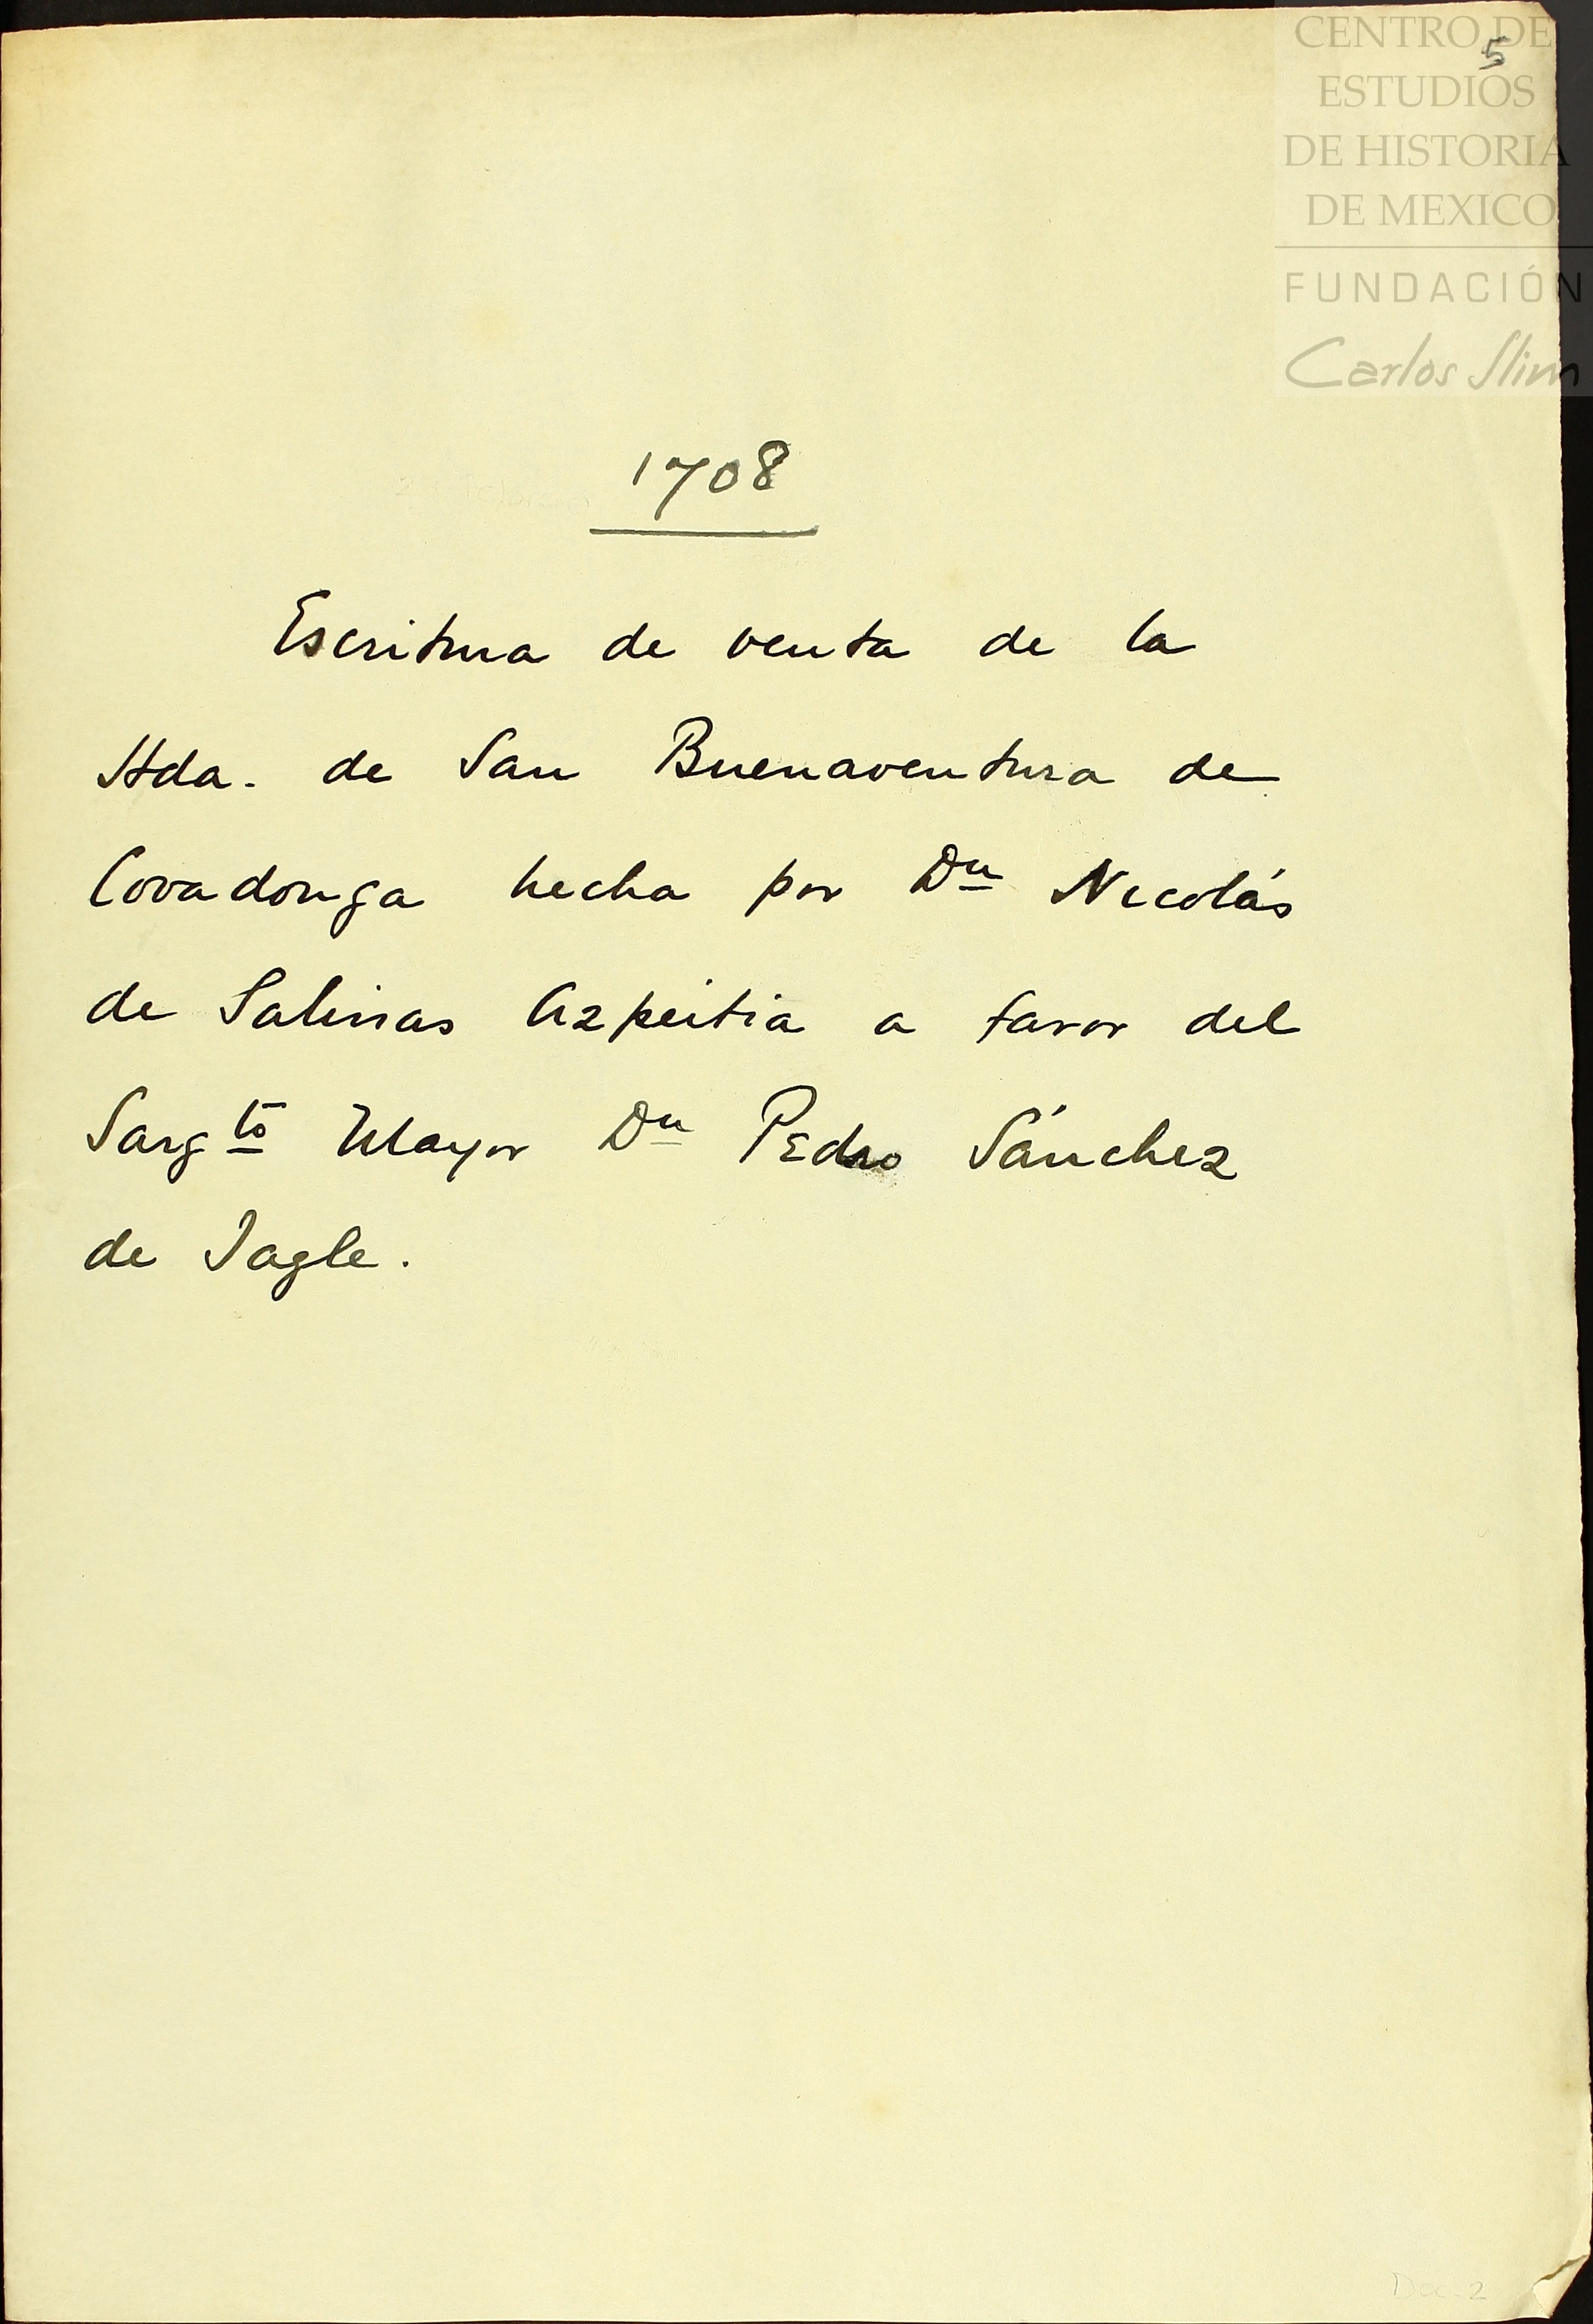 CENTRO DE
5
ESTUDIOS
DE HISTORIA
DE MEXICO
FUNDACIÓN
Carlos Slim
1708
Escritura de venta de la
Hda. de San Buenaventura de
Covadonga hecha por Dn Nicolás
de Salinas Azpeitia a favor del
Sargto Mayor Dn Pedro Sánchez
de Tagle.
Doc. 2